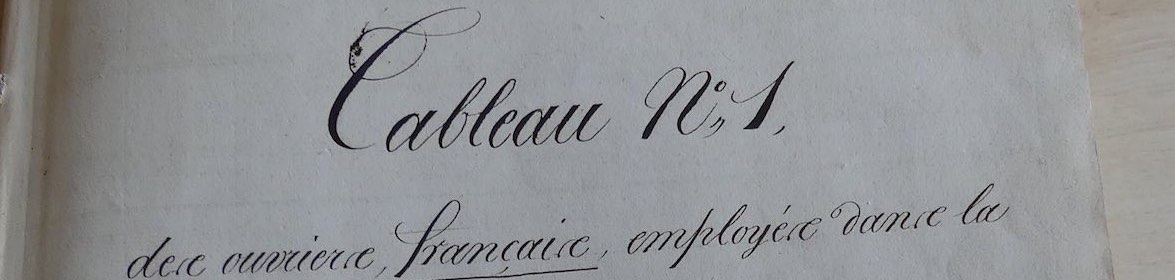 Tableau N° 1,
des ouvriers, français, employés dans la